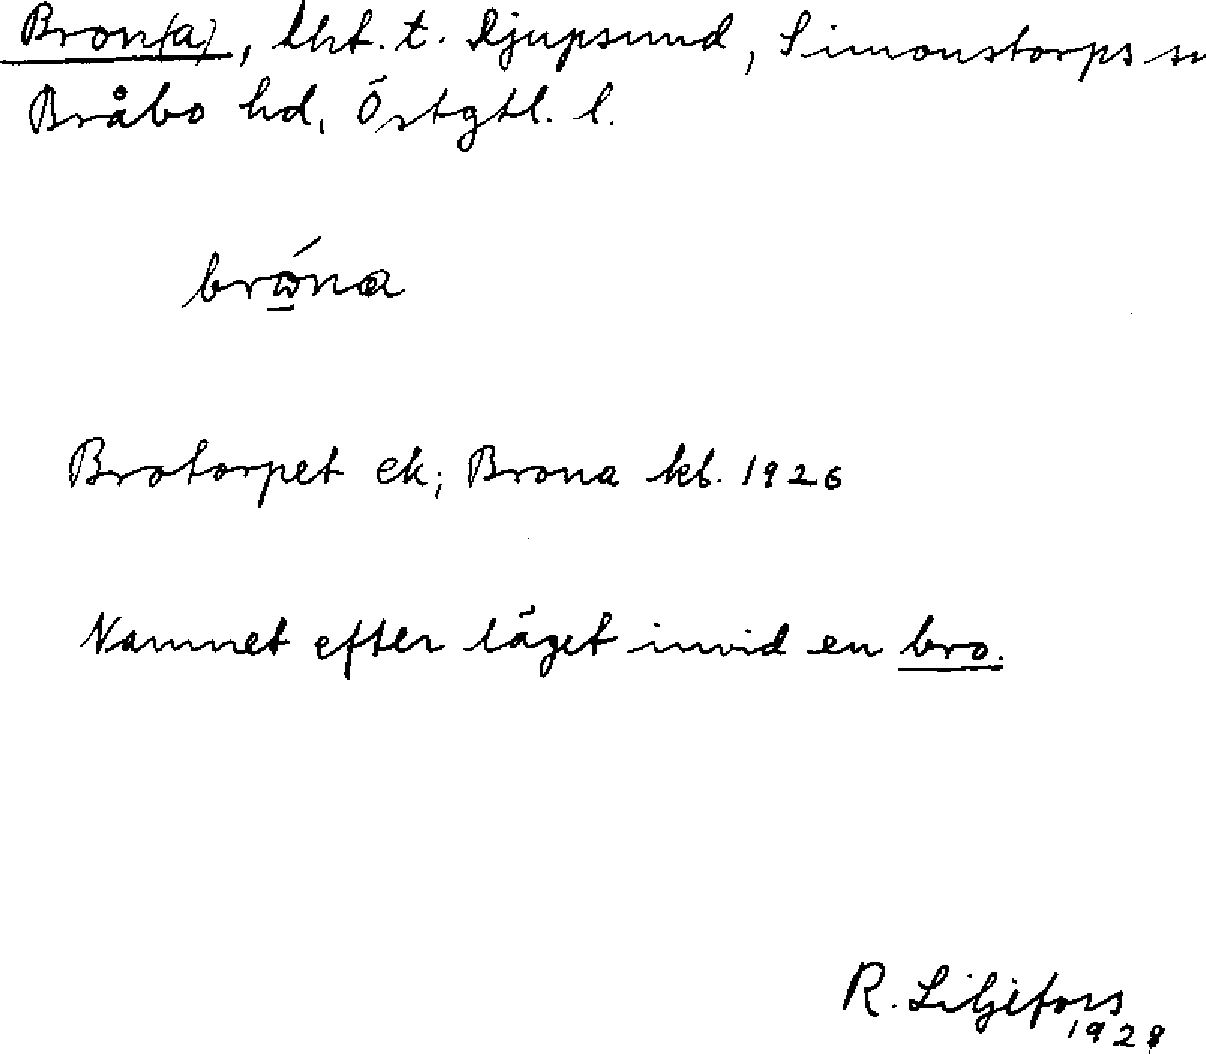 Bron(a), lht. t. Djupsund, Simonstorps sn
Bråbo hd, Östgtl. l.
Brotorpet ek; Brona kb. 1926
Namnet efter läget invid en bro.
R. Liljefors
1928